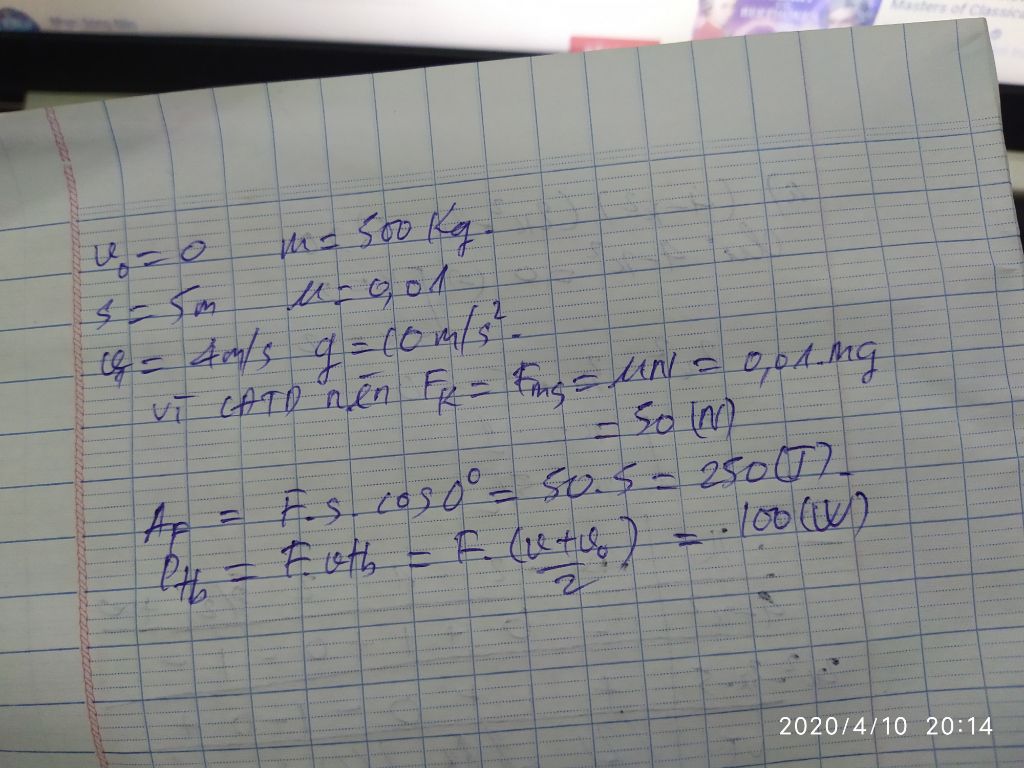 Masters of Classica
v₀ = 0 m = 500 Kg.
s = 5m μ = 0,01
= 4m/s g = 10 m/s².
vì CĐTD nên Fₖ = Fₘₛ = μN = 0,01.mg
= 50 (N)
A_F = F.s.cos0° = 50.5 = 250(J).
P_tb = F.v_tb = F.(v+v₀/2) = 100(W)
2020/4/10 20:14